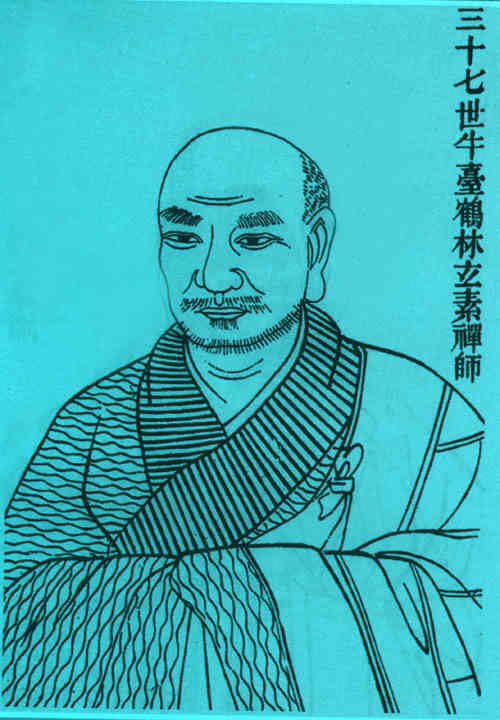 三十七世牛臺鶴林玄素禪師